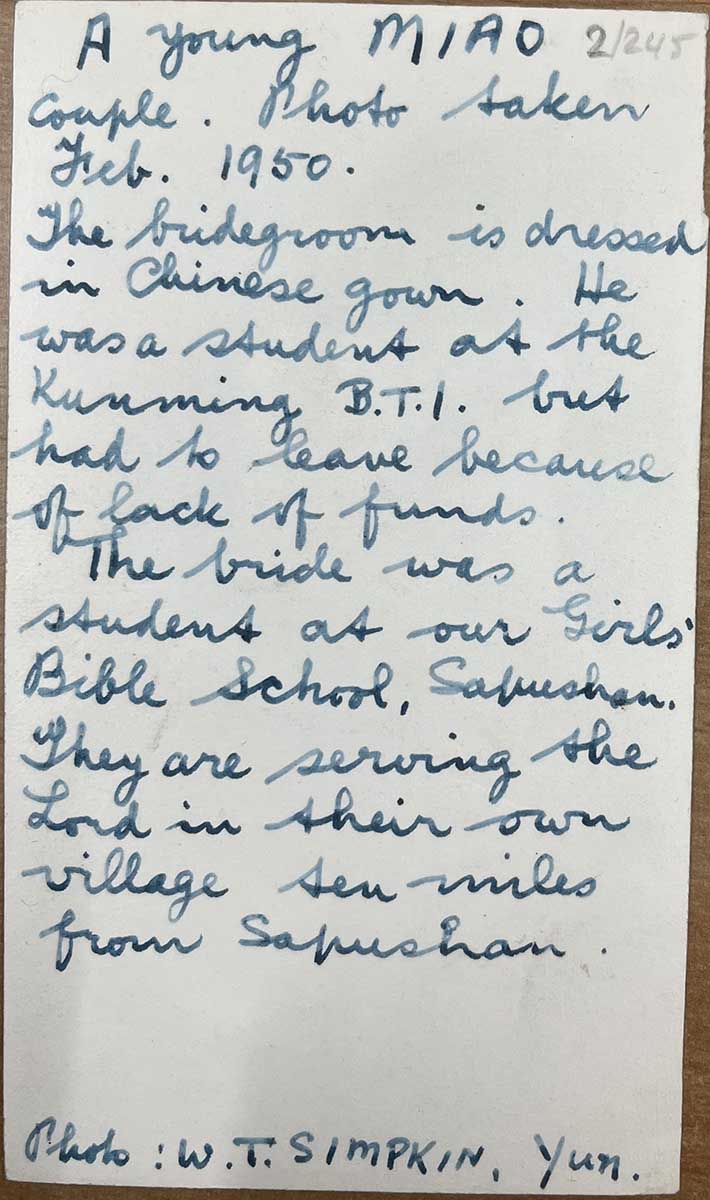 A young MIAO 2/245
couple. Photo taken
Feb. 1950.
The bridegroom is dressed
in Chinese gown. He
was a student at the
Kunming B.T.I. but
had to leave because
of lack of funds.
The bride was a
student at our Girls'
Bible School, Sapushan.
They are serving the
Lord in their own
village ten miles
from Sapushan.
Photo: W.T. SIMPKIN, Yun.